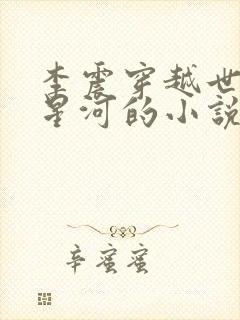 李震穿越世
星河的小説
辛蜜蜜